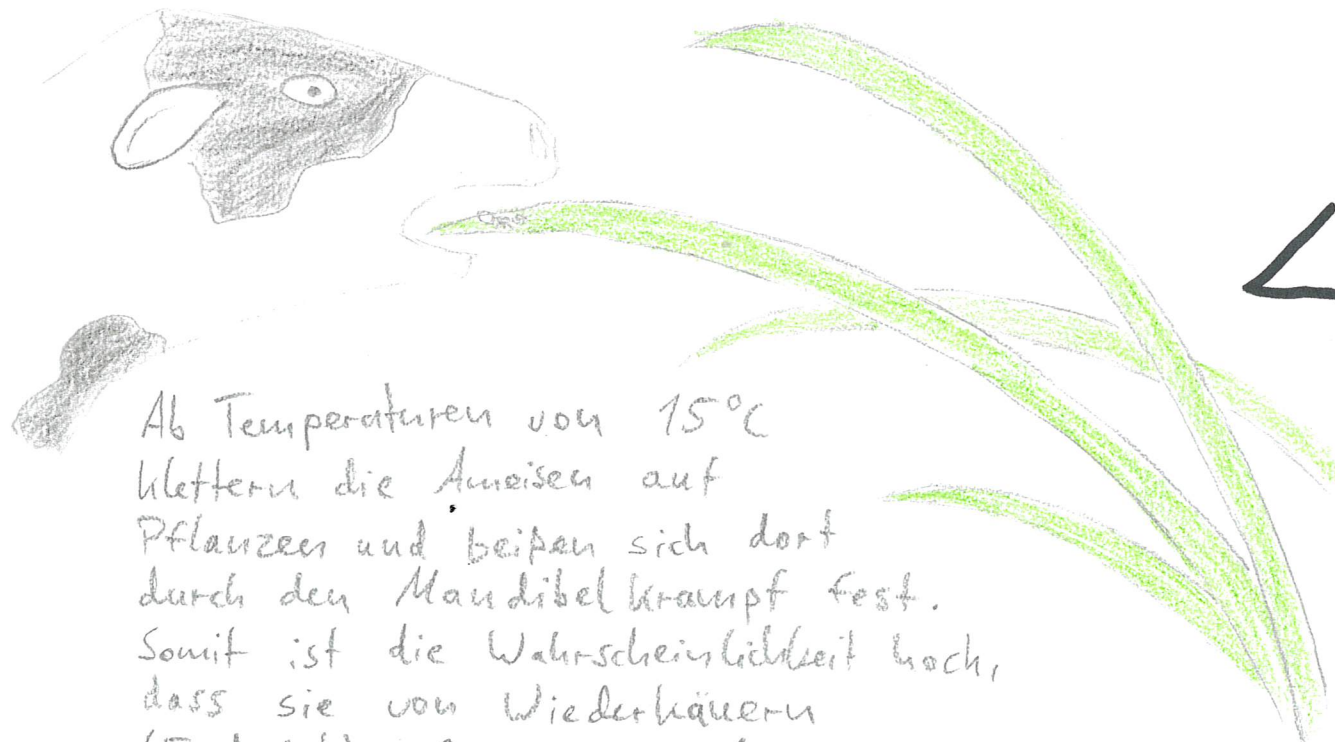 Ab Temperaturen von 15°C
klettern die Ameisen auf
Pflanzen und beißen sich dort
durch den Mandibelkrampf fest.
Somit ist die Wahrscheinlichkeit hoch,
dass sie von Wiederkäuern